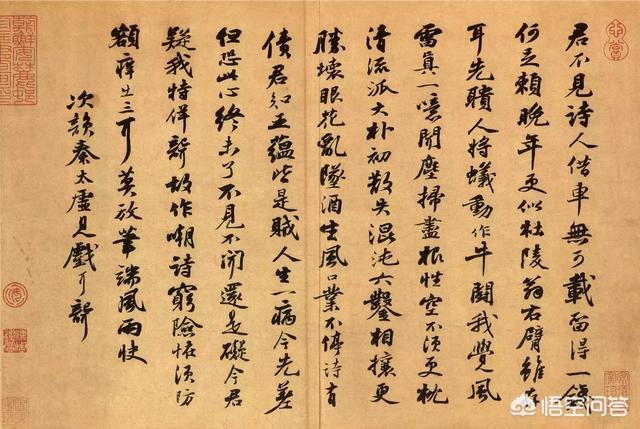 君不見詩人借車無可載留得一錢
何足賴晚年更似杜陵翁右臂雖存
耳先聵人將蟻動作牛鬪我覺風
雷真一噫聞塵掃盡根性空不須更枕
清流派大朴初散失混沌六鑿相攘更
勝壞眼花亂墜酒生風口業不停詩有
債君知五蘊皆是賊人生一病今先差
但恐此心終未了不見不聞還是礙今君
疑我特佯聾故作嘲詩窮險怪須防
額癢出三耳莫放筆端風雨快
次韻秦太虛見戲耳聾
悟空问答